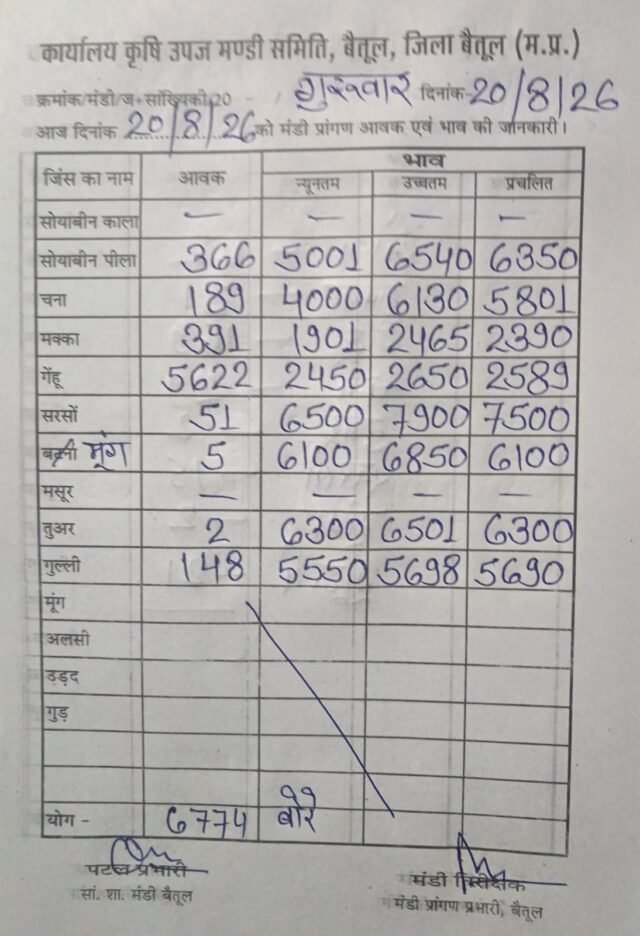 कार्यालय कृषि उपज मण्डी समिति, बैतूल, जिला बैतूल (म.प्र.)
क्रमांक/मंडी/ज+सांख्यिकी/20 - गुरूवार दिनांक-20/8/26
आज दिनांक 20/8/26 को मंडी प्रांगण आवक एवं भाव की जानकारी।
जिंस का नाम आवक भाव
न्यूनतम उच्चतम प्रचलित
सोयाबीन काला — — — —
सोयाबीन पीला 366 5001 6540 6350
चना 189 4000 6130 5801
मक्का 391 1901 2465 2390
गेंहू 5622 2450 2650 2589
सरसों 51 6500 7900 7500
बटनी मूंग 5 6100 6850 6100
मसूर — — — —
तुअर 2 6300 6501 6300
गुल्ली 148 5550 5698 5690
मूंग
अलसी
उड़द
गुड़
योग - 6774 बोरे
पटल प्रभारी
सां. शा. मंडी बैतूल
मंडी निरीक्षक
मंडी प्रांगण प्रभारी, बैतूल